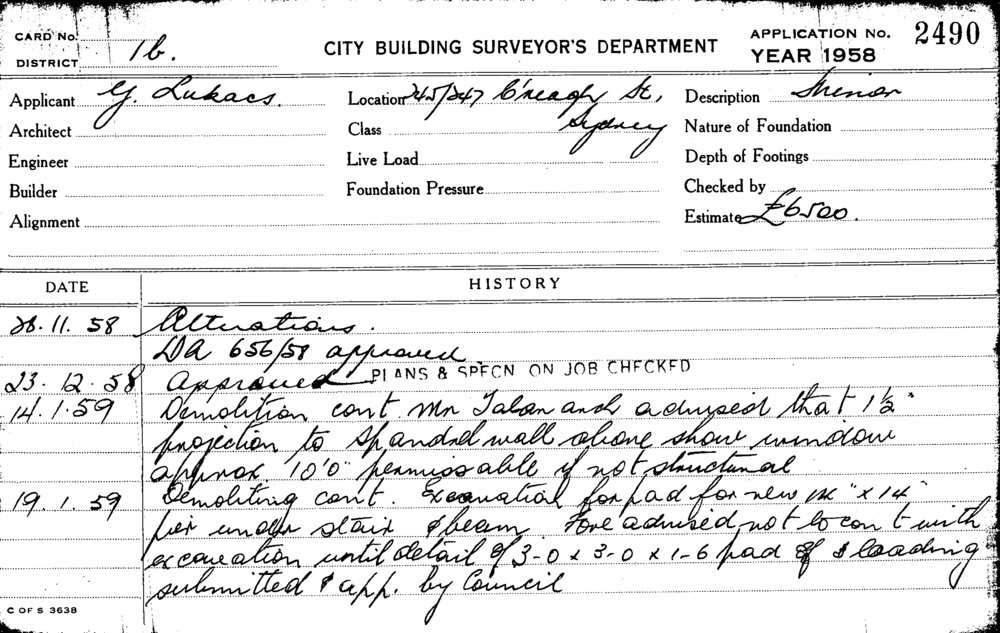 CARD No.
DISTRICT 1b.
CITY BUILDING SURVEYOR'S DEPARTMENT
APPLICATION No. 2490
YEAR 1958
Applicant G. Lukacs.
Location 245/247 C'reagh St, Sydney
Description Minor
Architect
Class
Nature of Foundation
Engineer
Live Load
Depth of Footings
Builder
Foundation Pressure
Checked by
Alignment
Estimate £6500.
DATE HISTORY
28.11.58 Alterations.
DA 656/58 approved
23.12.58 Approved PLANS & SPECN ON JOB CHECKED
14.1.59 Demolition cont Mr and advised that 1½"
projection to spandrel wall above show window
approx 10'0" permissable if not structural
19.1.59 Demoliting cont. Excavation for pad for new 14" x 14"
pier under stair & beam Fore advised not to cont with
excavation until detail of 3-0 x 3-0 x 1-6 pad & loading
submitted & app. by Council
C OF S 3638